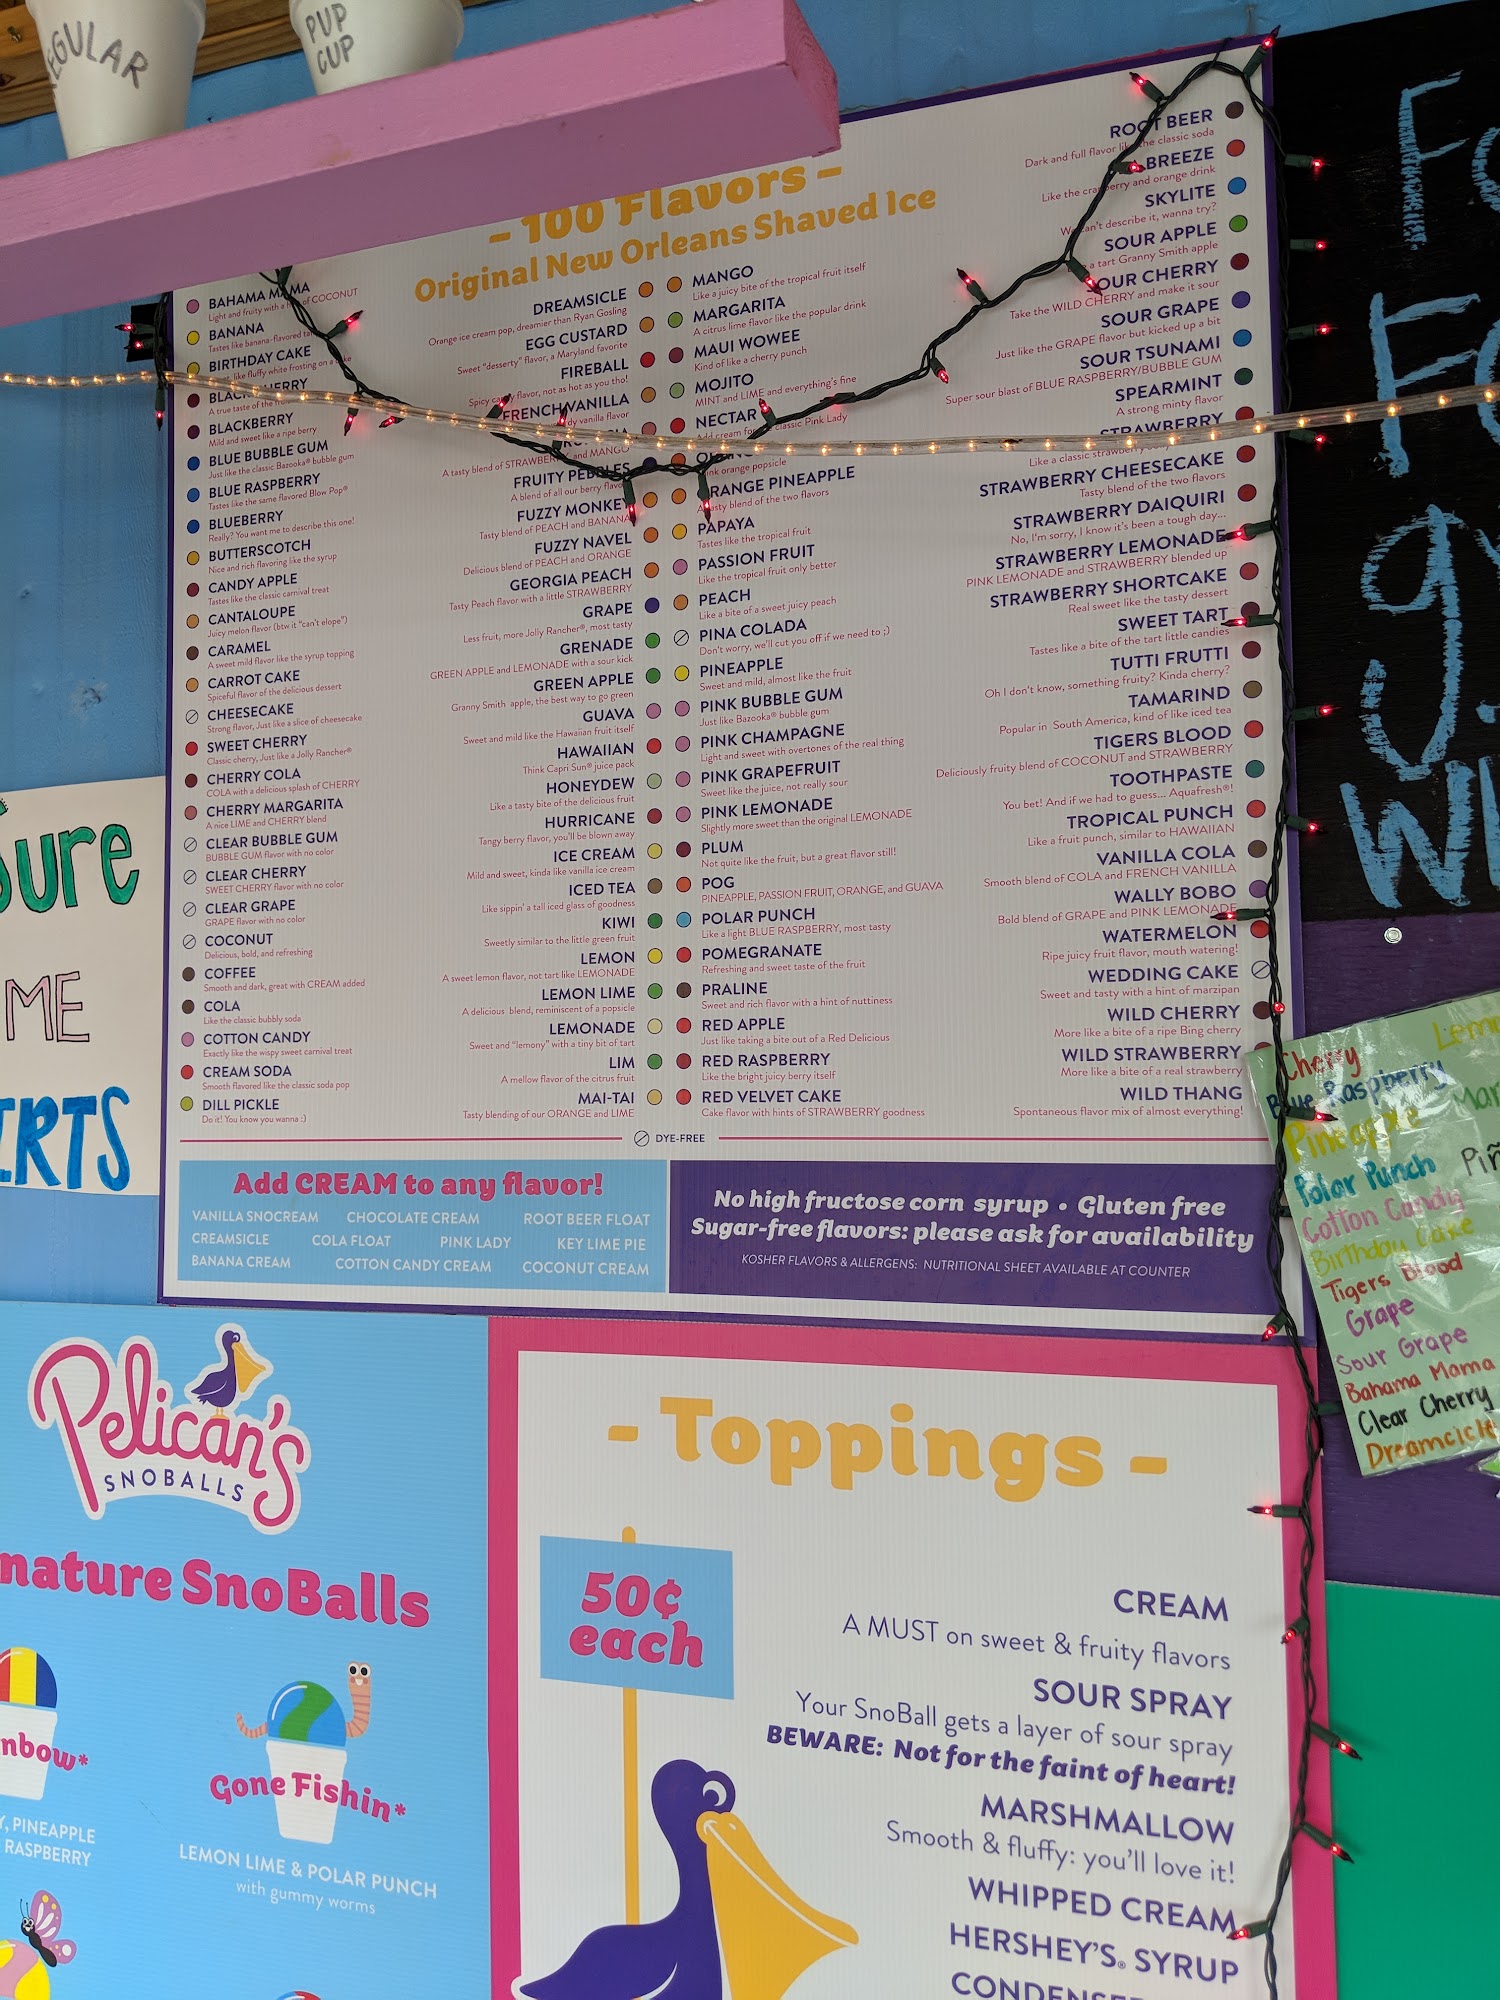 REGULAR
PUP
CUP
- 100 Flavors -
Original New Orleans Shaved Ice
BAHAMA MAMA
Light and fruity with a of COCONUT
BANANA
Tastes like banana-flavored
BIRTHDAY CAKE
like fluffy white frosting on a
A true taste of the
BLACKBERRY
Mild and sweet like a ripe berry
BLUE BUBBLE GUM
Just like the classic Bazooka® bubble gum
BLUE RASPBERRY
Tastes like the same flavored Blow Pop®
BLUEBERRY
Really? You want me to describe this one!
BUTTERSCOTCH
Nice and rich flavoring like the syrup
CANDY APPLE
Tastes like the classic carnival treat
CANTALOUPE
Juicy melon flavor (btw it "can't elope")
CARAMEL
A sweet mild flavor like the syrup topping
CARROT CAKE
Spiceful flavor of the delicious dessert
CHEESECAKE
Strong flavor, Just like a slice of cheesecake
SWEET CHERRY
Classic cherry, Just like a Jolly Rancher®
CHERRY COLA
COLA with a delicious splash of CHERRY
CHERRY MARGARITA
A nice LIME and CHERRY blend
CLEAR BUBBLE GUM
BUBBLE GUM flavor with no color
CLEAR CHERRY
SWEET CHERRY flavor with no color
CLEAR GRAPE
GRAPE flavor with no color
COCONUT
Delicious, bold, and refreshing
COFFEE
Smooth and dark, great with CREAM added
COLA
Like the classic bubbly soda
COTTON CANDY
Exactly like the wispy sweet carnival treat
CREAM SODA
Smooth flavored like the classic soda pop
DILL PICKLE
Do it! You know you wanna :)
DREAMSICLE
Orange ice cream pop, dreamier than Ryan Gosling
EGG CUSTARD
Sweet "desserty" flavor, a Maryland favorite
FIREBALL
Spicy candy flavor, not as hot as you tho!
FRENCH VANILLA
vanilla flavor
A tasty blend of STRAWBERRY and MANGO
FRUITY PEBBLES
A blend of all our berry flavors
FUZZY MONKEY
Tasty blend of PEACH and BANANA
FUZZY NAVEL
Delicious blend of PEACH and ORANGE
GEORGIA PEACH
Tasty Peach flavor with a little STRAWBERRY
GRAPE
Less fruit, more Jolly Rancher®, most tasty
GRENADE
GREEN APPLE and LEMONADE with a sour kick
GREEN APPLE
Granny Smith apple, the best way to go green
GUAVA
Sweet and mild like the Hawaiian fruit itself
HAWAIIAN
Think Capri Sun® juice pack
HONEYDEW
Like a tasty bite of the delicious fruit
HURRICANE
Tangy berry flavor, you'll be blown away
ICE CREAM
Mild and sweet, kinda like vanilla ice cream
ICED TEA
Like sippin' a tall iced glass of goodness
KIWI
Sweetly similar to the little green fruit
LEMON
A sweet lemon flavor, not tart like LEMONADE
LEMON LIME
A delicious blend, reminiscent of a popsicle
LEMONADE
Sweet and "lemony" with a tiny bit of tart
LIM
A mellow flavor of the citrus fruit
MAI-TAI
Tasty blending of our ORANGE and LIME
MANGO
Like a juicy bite of the tropical fruit itself
MARGARITA
A citrus lime flavor like the popular drink
MAUI WOWEE
Kind of like a cherry punch
MOJITO
MINT and LIME and everything's fine
NECTAR
Add cream for classic Pink Lady
orange popsicle
ORANGE PINEAPPLE
A tasty blend of the two flavors
PAPAYA
Tastes like the tropical fruit
PASSION FRUIT
Like the tropical fruit only better
PEACH
Like a bite of a sweet juicy peach
PINA COLADA
Don't worry, we'll cut you off if we need to ;)
PINEAPPLE
Sweet and mild, almost like the fruit
PINK BUBBLE GUM
Just like Bazooka® bubble gum
PINK CHAMPAGNE
Light and sweet with overtones of the real thing
PINK GRAPEFRUIT
Sweet like the juice, not really sour
PINK LEMONADE
Slightly more sweet than the original LEMONADE
PLUM
Not quite like the fruit, but a great flavor still!
POG
PINEAPPLE, PASSION FRUIT, ORANGE, and GUAVA
POLAR PUNCH
Like a light BLUE RASPBERRY, most tasty
POMEGRANATE
Refreshing and sweet taste of the fruit
PRALINE
Sweet and rich flavor with a hint of nuttiness
RED APPLE
Just like taking a bite out of a Red Delicious
RED RASPBERRY
Like the bright juicy berry itself
RED VELVET CAKE
Cake flavor with hints of STRAWBERRY goodness
ROOT BEER
Dark and full flavor like the classic soda
BREEZE
Like the cranberry and orange drink
SKYLITE
We can't describe it, wanna try?
SOUR APPLE
a tart Granny Smith apple
SOUR CHERRY
Take the WILD CHERRY and make it sour
SOUR GRAPE
Just like the GRAPE flavor but kicked up a bit
SOUR TSUNAMI
Super sour blast of BLUE RASPBERRY/BUBBLE GUM
SPEARMINT
A strong minty flavor
STRAWBERRY
Like a classic strawberry
STRAWBERRY CHEESECAKE
Tasty blend of the two flavors
STRAWBERRY DAIQUIRI
No, I'm sorry, I know it's been a tough day...
STRAWBERRY LEMONADE
PINK LEMONADE and STRAWBERRY blended up
STRAWBERRY SHORTCAKE
Real sweet like the tasty dessert
SWEET TART
Tastes like a bite of the tart little candies
TUTTI FRUTTI
Oh I don't know, something fruity? Kinda cherry?
TAMARIND
Popular in South America, kind of like iced tea
TIGERS BLOOD
Deliciously fruity blend of COCONUT and STRAWBERRY
TOOTHPASTE
You bet! And if we had to guess... Aquafresh®!
TROPICAL PUNCH
Like a fruit punch, similar to HAWAIIAN
VANILLA COLA
Smooth blend of COLA and FRENCH VANILLA
WALLY BOBO
Bold blend of GRAPE and PINK LEMONADE
WATERMELON
Ripe juicy fruit flavor, mouth watering!
WEDDING CAKE
Sweet and tasty with a hint of marzipan
WILD CHERRY
More like a bite of a ripe Bing cherry
WILD STRAWBERRY
More like a bite of a real strawberry
WILD THANG
Spontaneous flavor mix of almost everything!
DYE-FREE
Add CREAM to any flavor!
VANILLA SNOCREAM CHOCOLATE CREAM ROOT BEER FLOAT
CREAMSICLE COLA FLOAT PINK LADY KEY LIME PIE
BANANA CREAM COTTON CANDY CREAM COCONUT CREAM
No high fructose corn syrup • Gluten free
Sugar-free flavors: please ask for availability
KOSHER FLAVORS & ALLERGENS: NUTRITIONAL SHEET AVAILABLE AT COUNTER
Sure
ME
IRTS
Cherry
Blue Raspberry
Pineapple
Polar Punch
Cotton Candy
Birthday Cake
Tigers Blood
Grape
Sour Grape
Bahama Mama
Clear Cherry
Dreamcicle
Pelican's
SNOBALLS
nature SnoBalls
nbow*
Y, PINEAPPLE
RASPBERRY
Gone Fishin*
LEMON LIME & POLAR PUNCH
with gummy worms
- Toppings -
50¢
each
CREAM
A MUST on sweet & fruity flavors
SOUR SPRAY
Your SnoBall gets a layer of sour spray
BEWARE: Not for the faint of heart!
MARSHMALLOW
Smooth & fluffy: you'll love it!
WHIPPED CREAM
HERSHEY'S® SYRUP